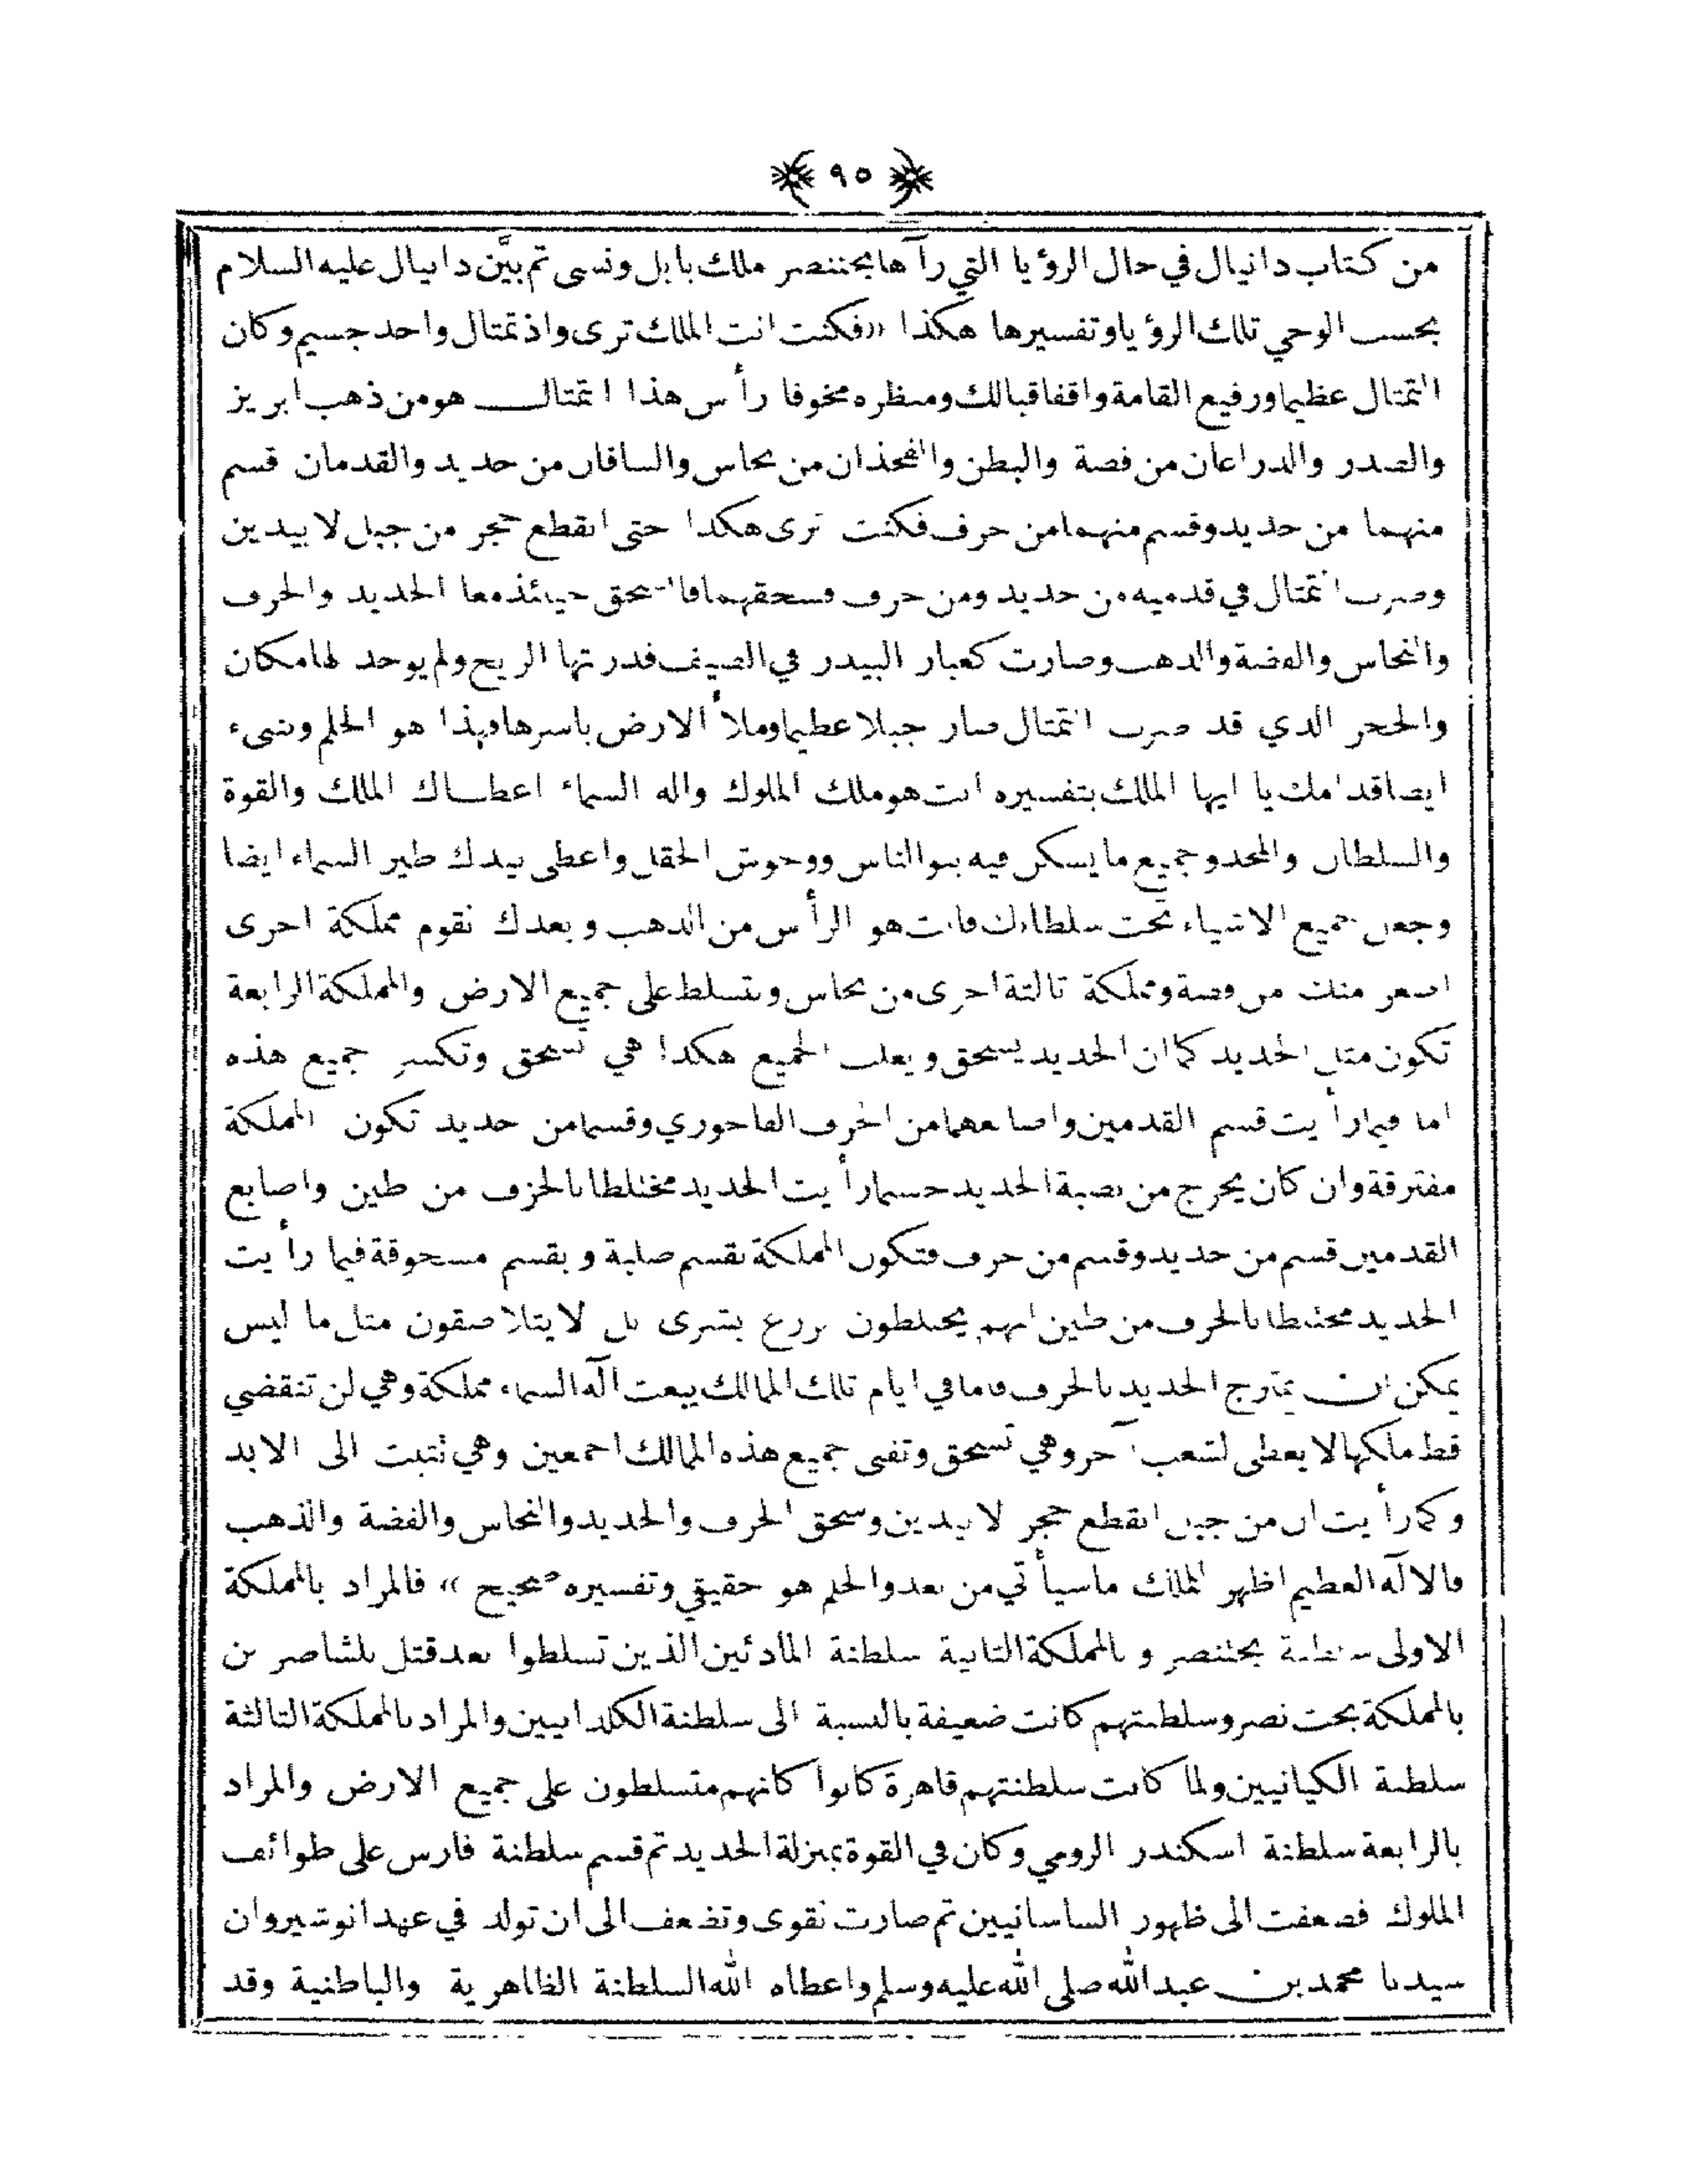 ٩٥
من كتاب دانيال في حال الرؤيا التي رآها بختنصر ملك بابل ونسى ثم بيَّن دانيال عليه السلام
بحسب الوحي تلك الرؤيا وتفسيرها هكذا «فكنت انت الملك ترى واذ تمثال واحد جسيم وكان
التمثال عظيما ورفيع القامة واقفا قبالك ومنظره مخوفا رأس هذا التمثال هو من ذهب ابريز
والصدر والذراعان من فضة والبطن والفخذان من نحاس والساقان من حديد والقدمان قسم
منهما من حديد وقسم منهما من خزف فكنت ترى هكذا حتى انقطع حجر من جبل لا بيدين
وضرب التمثال في قدميه من حديد ومن خزف فسحقهما فانسحق حينئذ معا الحديد والخزف
والنحاس والفضة والذهب وصارت كغبار البيدر في الصيف فذرتها الريح ولم يوجد لها مكان
والحجر الذي قد ضرب التمثال صار جبلا عظيما وملأ الارض باسرها فهذا هو الحلم وننبىء
ايضا قدامك يا ايها الملك بتفسيره انت هو ملك الملوك واله السماء اعطاك الملك والقوة
والسلطان والمجد وجميع ما يسكن فيه بنو الناس ووحوش الحقل واعطى بيدك طير السماء ايضا
وجعل جميع الاشياء تحت سلطانك فانت هو الرأس من الذهب وبعدك نقوم مملكة اخرى
اصغر منك من فضة ومملكة ثالثة اخرى من نحاس وتتسلط على جميع الارض والمملكة الرابعة
تكون مثل الحديد كما ان الحديد يسحق ويغلب الجميع هكذا هي تسحق وتكسر جميع هذه
اما فيما رأيت قسم القدمين واصابعهما من الخزف الفاخوري وقسما من حديد تكون المملكة
مفترقة وان كان يخرج من نصبة الحديد حسبما رأيت الحديد مختلطا بالخزف من طين واصابع
القدمين قسم من حديد وقسم من خزف فتكون المملكة بقسم صلبة وبقسم مسحوقة فيما رأيت
الحديد مختلطا بالخزف من طين انهم يختلطون بزرع بشرى بل لا يتلاصقون مثل ما ليس
يمكن ان يمتزج الحديد بالخزف فاما في ايام تلك الممالك يبعث آله السماء مملكة وهي لن تنقضي
قط ملكها لا يعطى لشعب آخر وهي تسحق وتفنى جميع هذه الممالك اجمعين وهي نثبت الى الابد
وكما رأيت ان من جبل انقطع حجر لا بيدين وسحق الخزف والحديد والنحاس والفضة والذهب
فالاله العظيم اظهر للملك ما سيأتي من بعد والحلم هو حقيقي وتفسيره صحيح» فالمراد بالمملكة
الاولى سلطنة بختنصر وبالمملكة الثانية سلطنة المادئين الذين تسلطوا بعد قتل بلشاصر بن
بالمملكة بخت نصر وسلطنتهم كانت ضعيفة بالنسبة الى سلطنة الكلدانيين والمراد بالمملكة الثالثة
سلطنة الكيانيين ولما كانت سلطنتهم قاهرة كانوا كانهم متسلطون على جميع الارض والمراد
بالرابعة سلطنة اسكندر الرومي وكان في القوة بمنزلة الحديد ثم قسم سلطنة فارس على طوائف
الملوك فضعفت الى ظهور الساسانيين ثم صارت نقوى وتضعف الى ان تولد في عهد انوشيروان
سيدنا محمد بن عبد الله صلى الله عليه وسلم واعطاه الله السلطنة الظاهرية والباطنية وقد